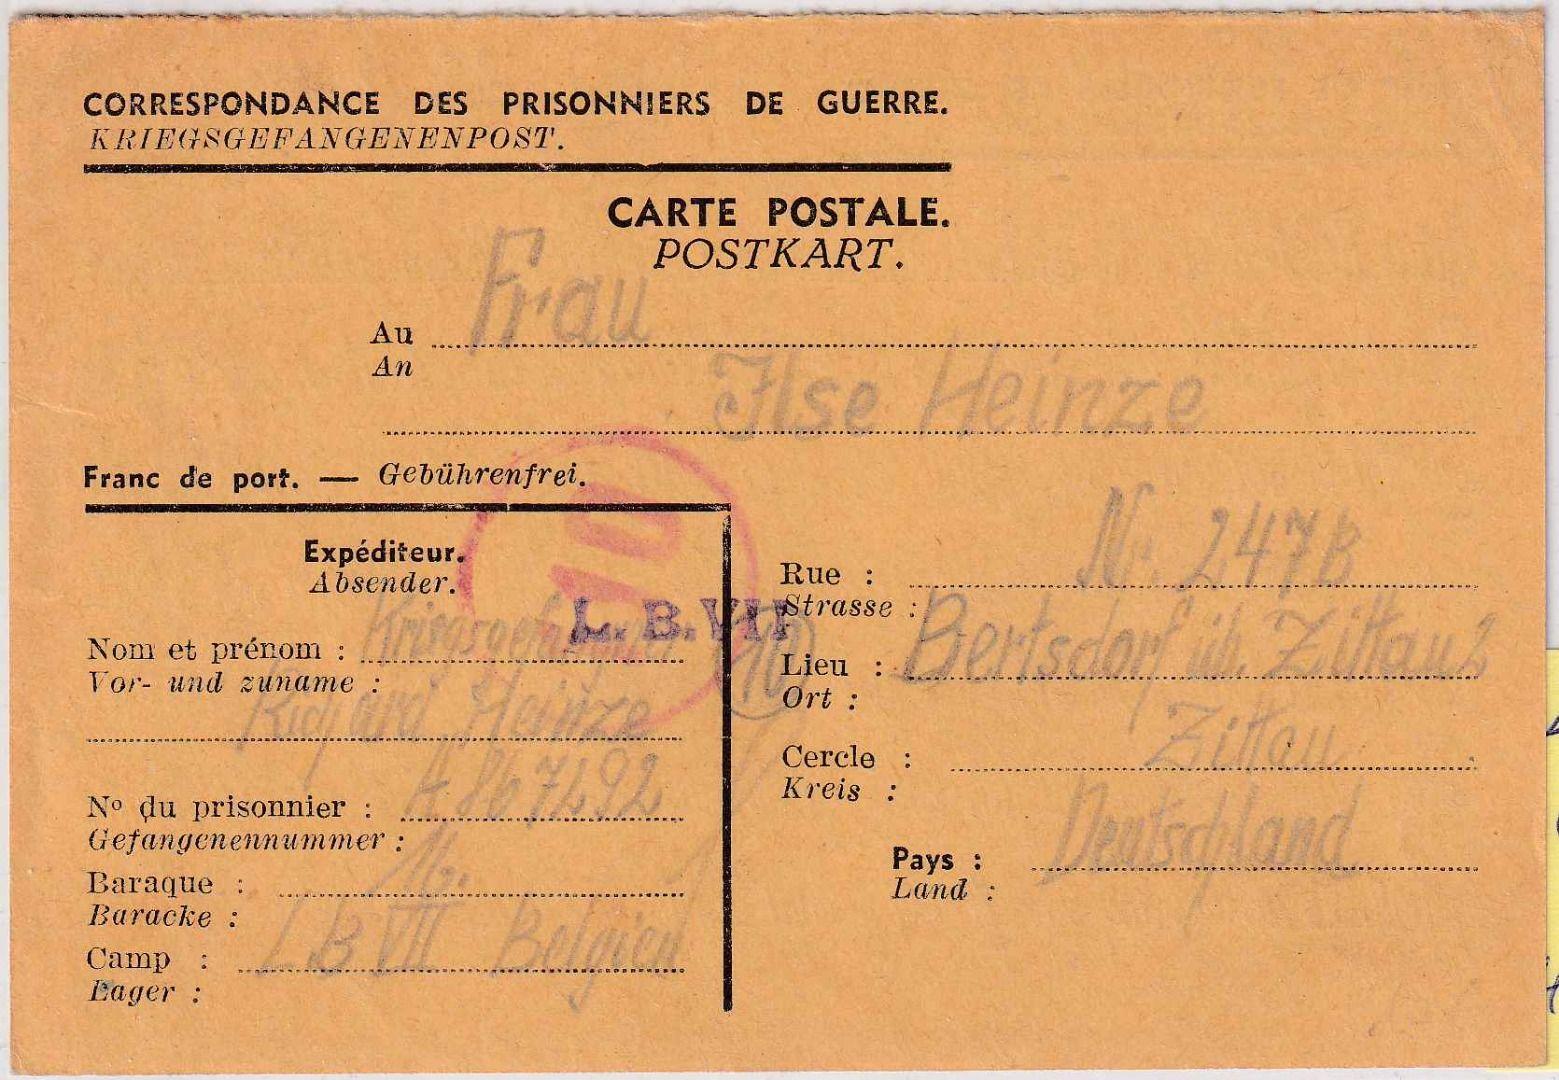 CORRESPONDANCE DES PRISONNIERS DE GUERRE.
KRIEGSGEFANGENENPOST.
CARTE POSTALE.
POSTKART.
Au
An
Frau
Ilse Heinze
Franc de port. — Gebührenfrei.
10
Expéditeur.
Absender.
L. B. VII
10
Nom et prénom : Kriegsgefangener
Vor- und zuname :
Richard Heinze
Nº du prisonnier : A 867492
Gefangenennummer :
Baraque :
Baracke :
Camp : L B VII Belgien
Lager :
Rue : Nr. 247B
Strasse :
Lieu : Bertsdorf üb. Zittau 2
Ort :
Cercle : Zittau
Kreis :
Pays : Deutschland
Land :